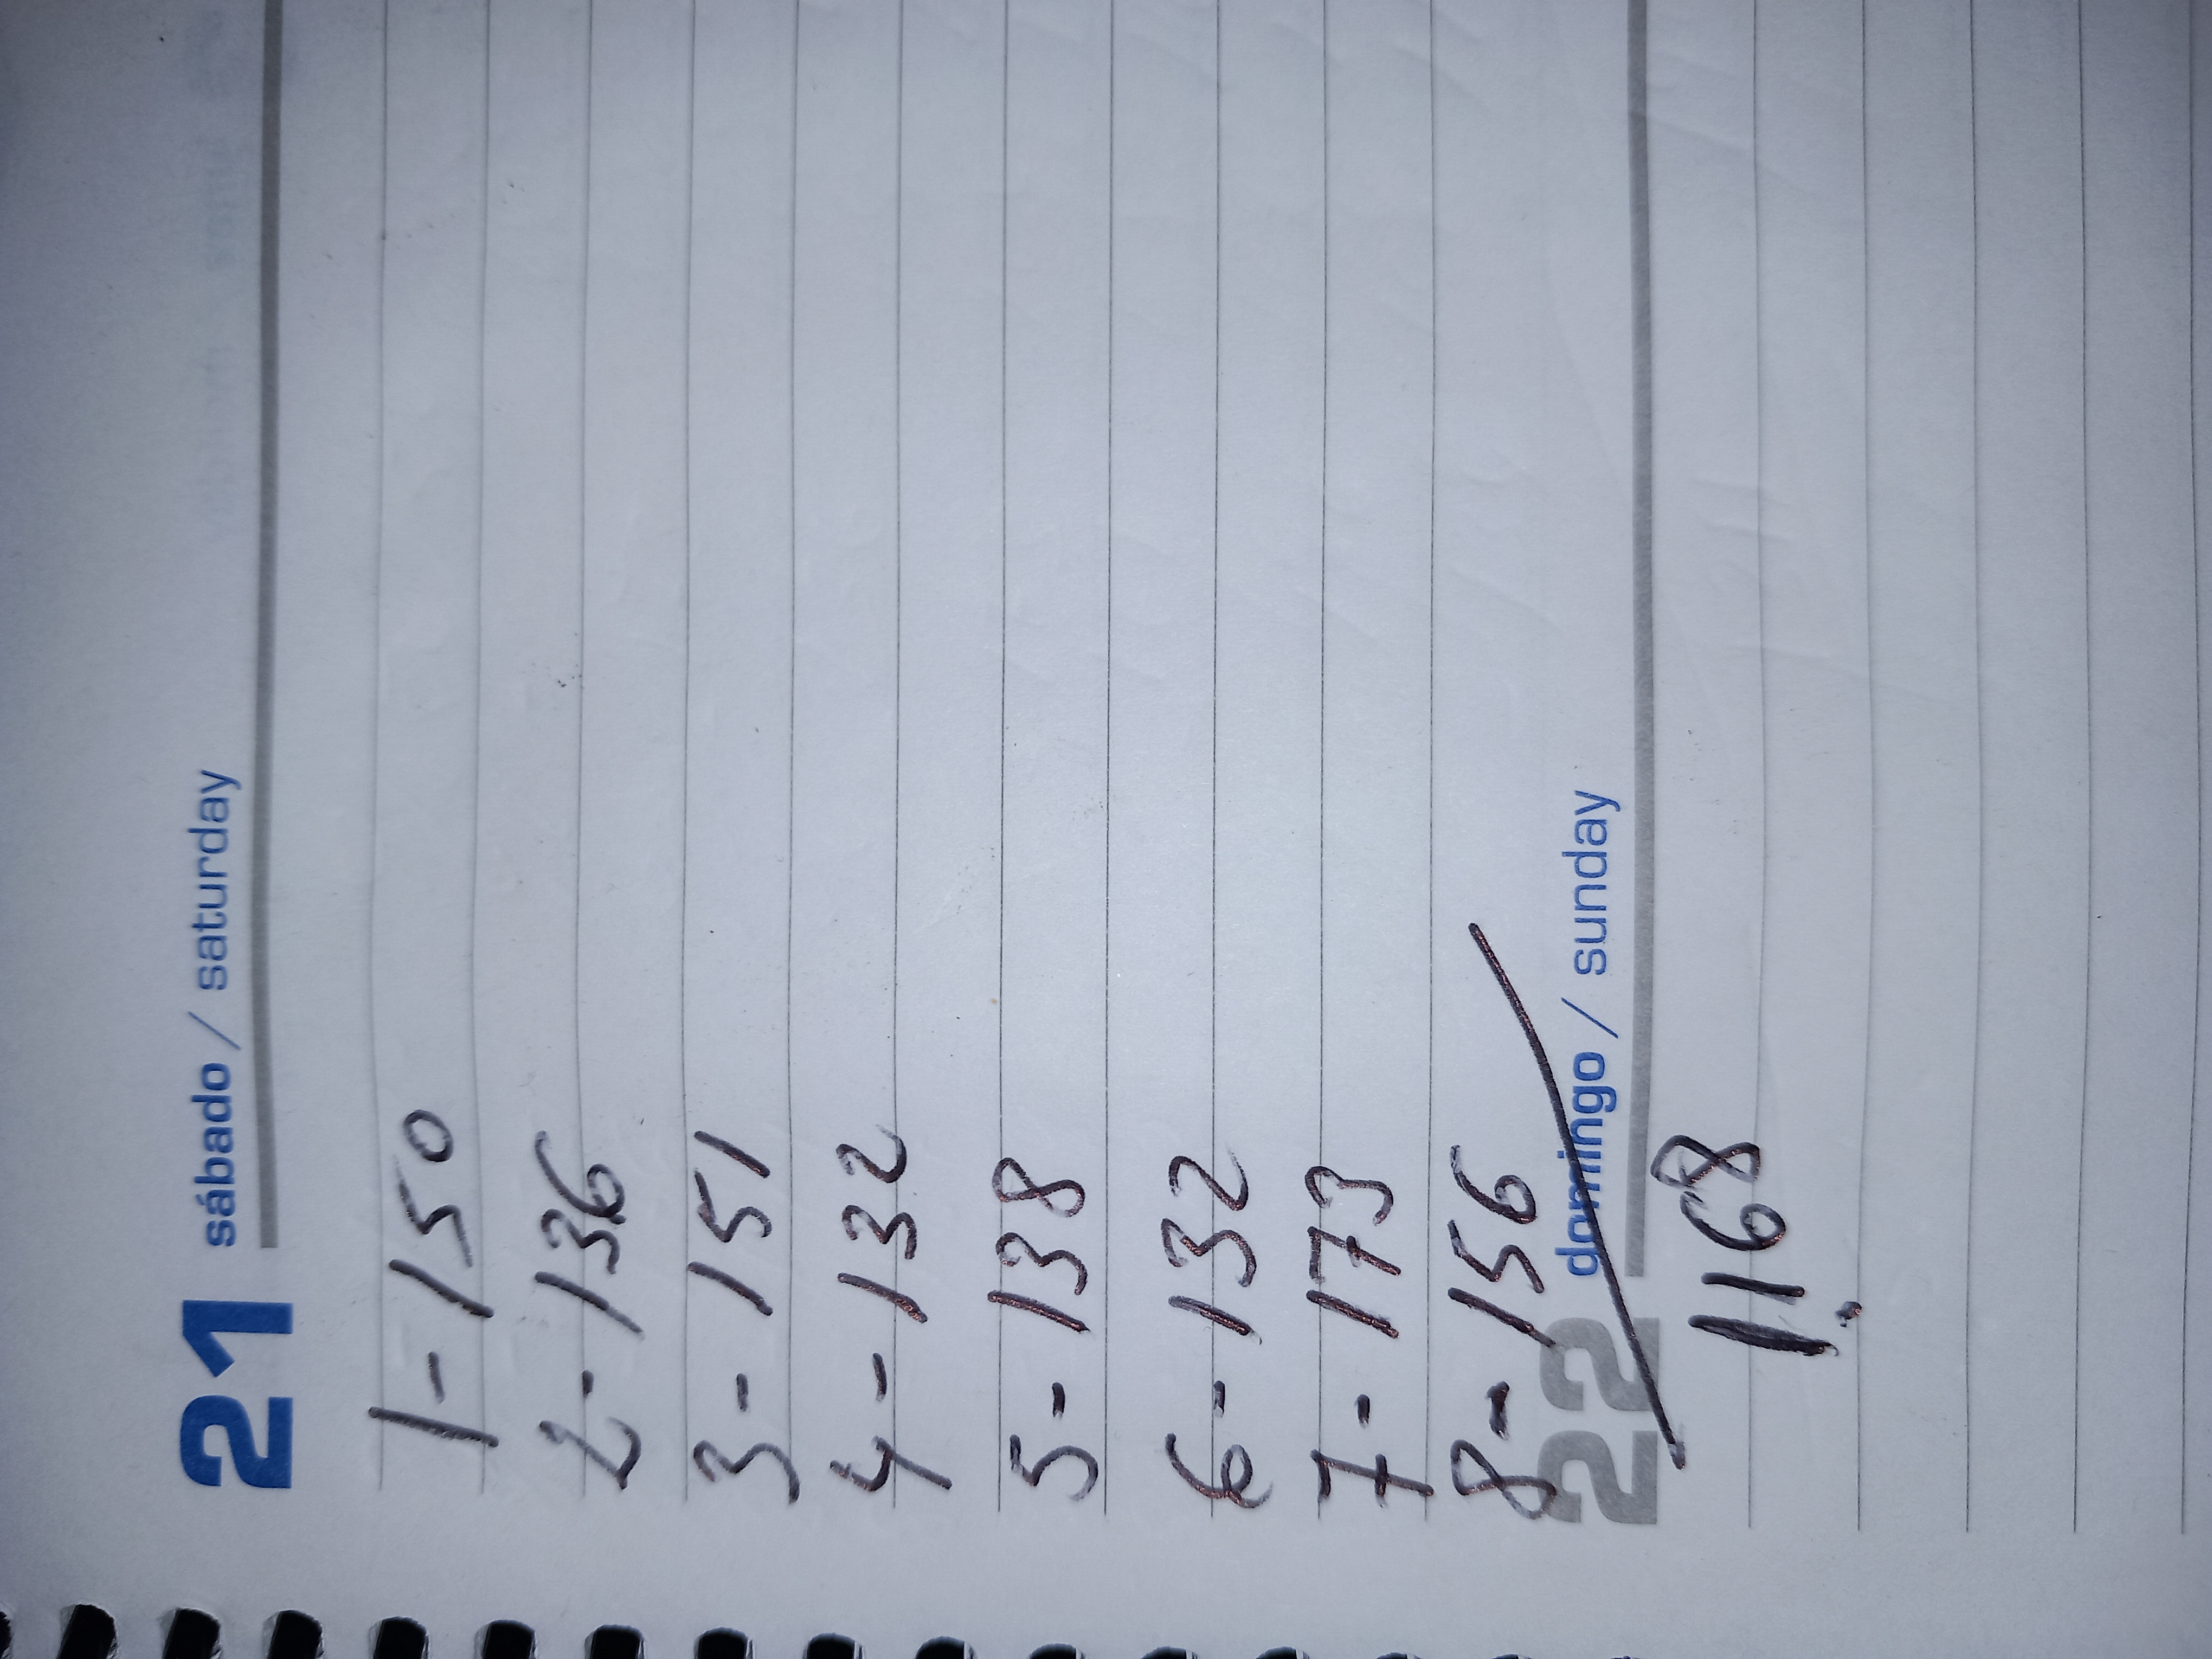 21 sábado / saturday
1-150
2-136
3-151
4-132
5-138
6-132
7-173
8-156
22 domingo / sunday
1168